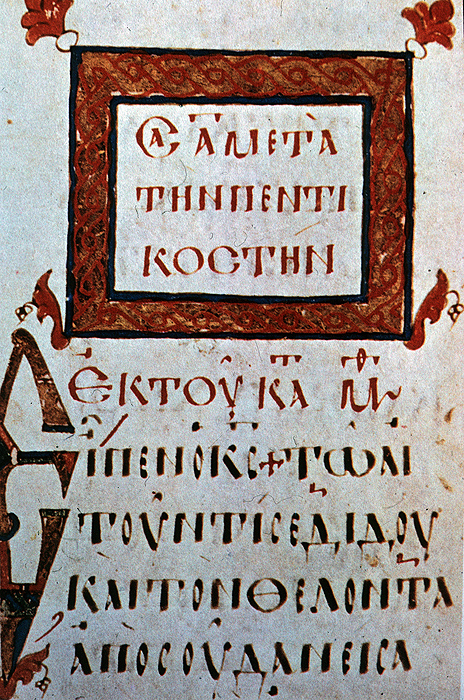 ϹΑ Α ΜΕΤᾺ
ΤΗΝ ΠΕΝΤΙ
ΚΟϹΤΗΝ
ἘΚ ΤΟΥ ΚΑΤ ΜΘ
ΕΙΠΕΝ Ο ΚϹ + ΤΩ ΑΙ
ΤΟΥΝΤΙ ϹΕ ΔΙΔΟΥ
ΚΑΙ ΤΟΝ ΘΕΛΟΝΤΑ
ΑΠΟ ϹΟΥ ΔΑΝΕΙϹΑ